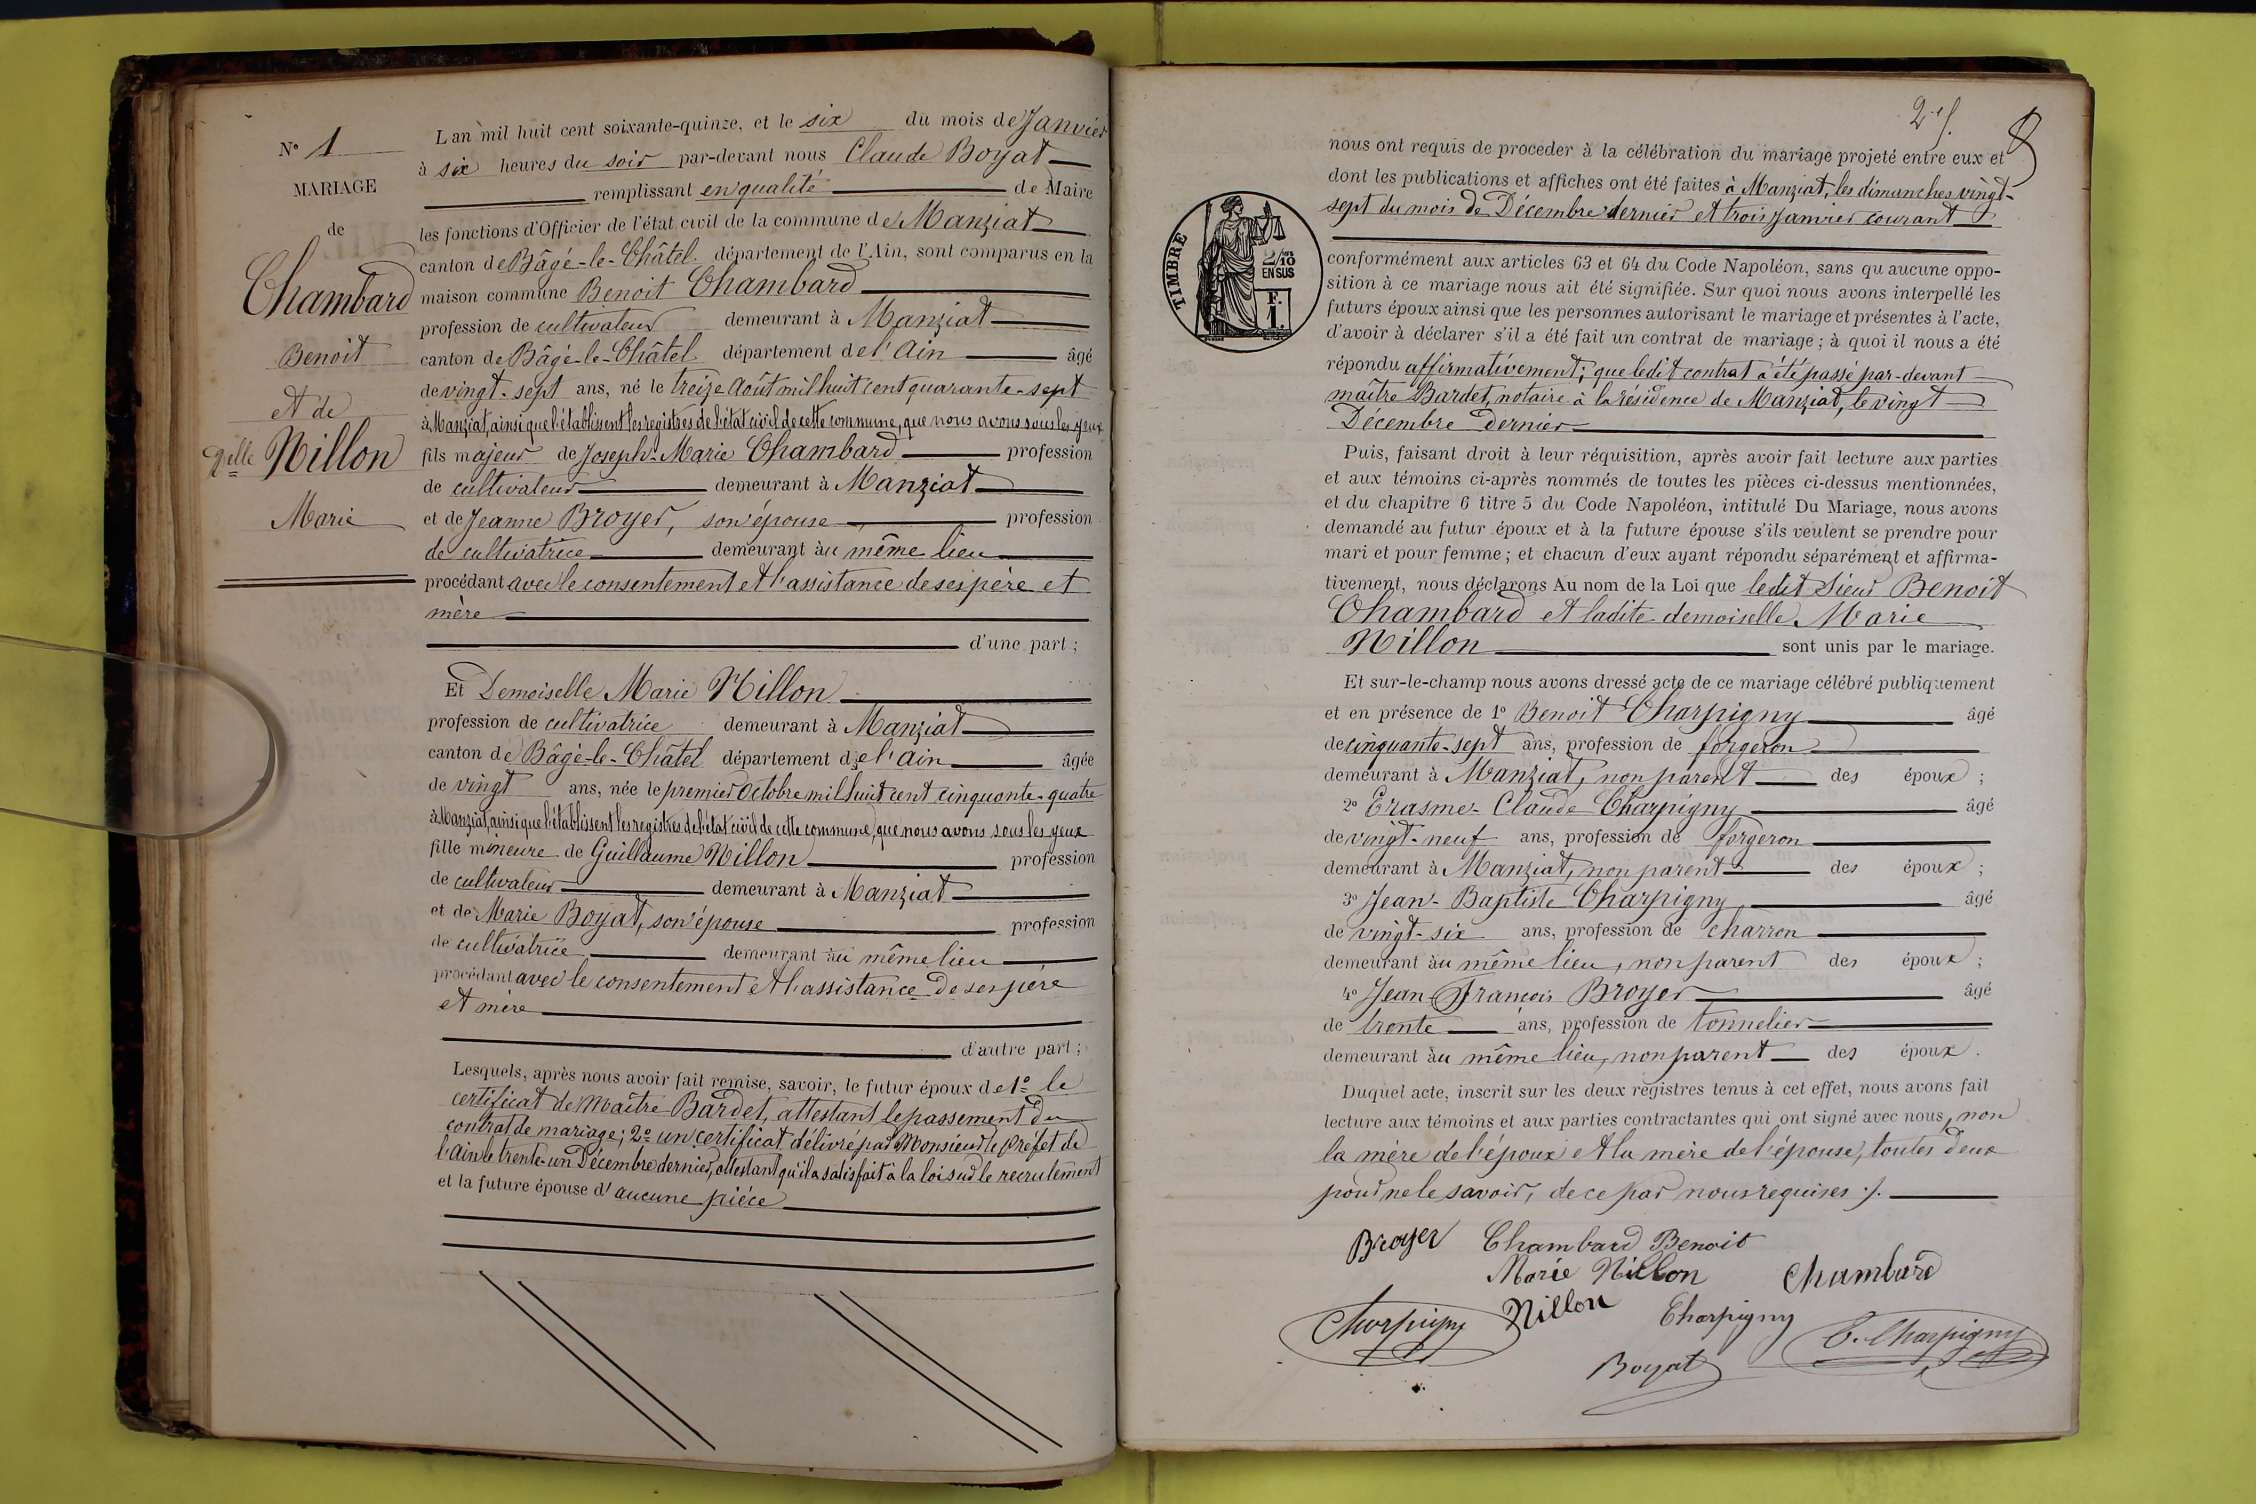 N° 1
MARIAGE
de
Chambard
Benoit
et de
Dlle Nillon
Marie
L'an mil huit cent soixante-quinze, et le six du mois de Janvier
à six heures du soir par-devant nous Claude Boyat
remplissant en qualité de Maire
les fonctions d'Officier de l'état civil de la commune de Manziat
canton de Bâgé-le-Châtel département de l'Ain, sont comparus en la
maison commune Benoit Chambard
profession de cultivateur demeurant à Manziat
canton de Bâgé-le-Châtel département de l'Ain âgé
de vingt-sept ans, né le treize Août mil huit cent quarante-sept
à Manziat, ainsi que l'établissent les registres de l'état civil de cette commune, que nous avons sous les yeux
fils majeur de Joseph-Marie Chambard profession
de cultivateur demeurant à Manziat
et de Jeanne Broyer, son épouse profession
de cultivatrice demeurant àu même lieu
procédant avec le consentement et l'assistance de ses père et
mère
d'une part ;
Et Demoiselle Marie Nillon
profession de cultivatrice demeurant à Manziat
canton de Bâgé-le-Châtel département de l'Ain âgée
de vingt ans, née le premier Octobre mil huit cent cinquante-quatre
à Manziat, ainsi que l'établissent les registres de l'état civil de cette commune, que nous avons sous les yeux
fille mineure de Guillaume Nillon profession
de cultivateur demeurant à Manziat
et de Marie Boyat, son épouse profession
de cultivatrice demeurant àu même lieu
procédant avec le consentement et l'assistance de ses père
et mère
d'autre part ;
Lesquels, après nous avoir fait remise, savoir, le futur époux de 1° le
certificat de Maître Bardet, attestant le passement du
contrat de mariage ; 2° un certificat délivré par Monsieur le Préfet de
l'Ain le trente-un Décembre dernier, attestant qu'il a satisfait à la loi sur le recrutement
et la future épouse d'aucune pièce
2 f.
TIMBRE
2/10
EN SUS
F.
1.
nous ont requis de procéder à la célébration du mariage projeté entre eux et
dont les publications et affiches ont été faites à Manziat, les dimanches vingt-
sept du mois de Décembre dernier et trois Janvier courant
conformément aux articles 63 et 64 du Code Napoléon, sans qu'aucune oppo-
sition à ce mariage nous ait été signifiée. Sur quoi nous avons interpellé les
futurs époux ainsi que les personnes autorisant le mariage et présentes à l'acte,
d'avoir à déclarer s'il a été fait un contrat de mariage ; à quoi il nous a été
répondu affirmativement ; que ledit contrat a été passé par-devant
maître Bardet, notaire à la résidence de Manziat, le vingt
Décembre dernier
Puis, faisant droit à leur réquisition, après avoir fait lecture aux parties
et aux témoins ci-après nommés de toutes les pièces ci-dessus mentionnées,
et du chapitre 6 titre 5 du Code Napoléon, intitulé Du Mariage, nous avons
demandé au futur époux et à la future épouse s'ils veulent se prendre pour
mari et pour femme ; et chacun d'eux ayant répondu séparément et affirma-
tivement, nous déclarons Au nom de la Loi que ledit Sieur Benoit
Chambard et ladite demoiselle Marie
Nillon sont unis par le mariage.
Et sur-le-champ nous avons dressé acte de ce mariage célébré publiquement
et en présence de 1° Benoit Charpigny âgé
de cinquante-sept ans, profession de forgeron
demeurant à Manziat, non parent des époux ;
2° Erasme-Claude Charpigny âgé
de vingt-neuf ans, profession de forgeron
demeurant à Manziat, non parent des époux ;
3° Jean-Baptiste Charpigny âgé
de vingt-six ans, profession de charron
demeurant àu même lieu, non parent des époux ;
4° Jean-François Broyer âgé
de trente ans, profession de tonnelier
demeurant àu même lieu, non parent des époux.
Duquel acte, inscrit sur les deux registres tenus à cet effet, nous avons fait
lecture aux témoins et aux parties contractantes qui ont signé avec nous, non
la mère de l'époux et la mère de l'épouse, toutes deux
pour ne le savoir, de ce par nous requises ./.
Broyer Chambard Benoit
Marie Nillon Chambard
Charpigny Nillon Charpigny E. Charpigny
Boyat